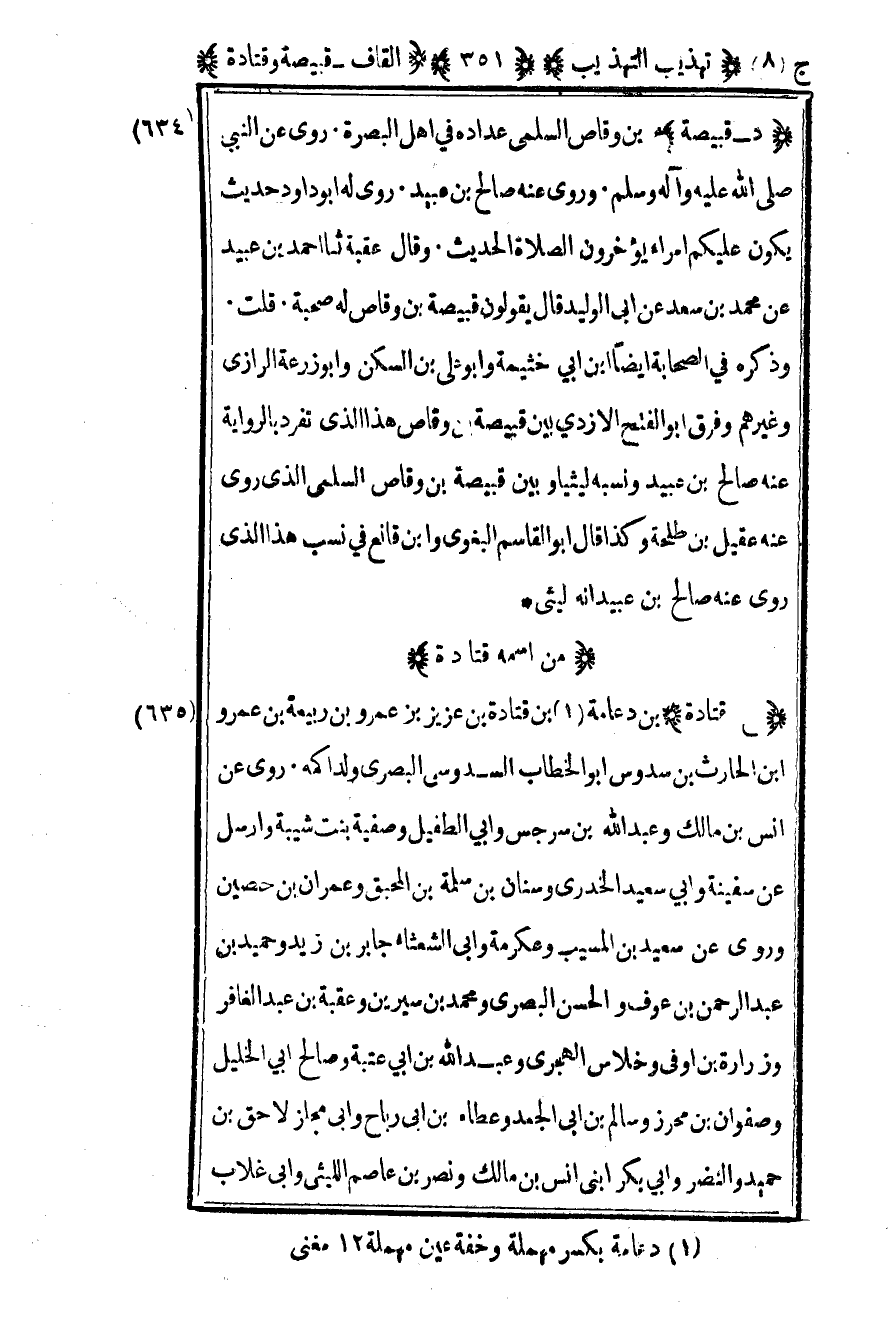 ج (٨) ﴿ تهذيب التهذيب ﴾ ﴿ ٣٥١ ﴾ ﴿ القاف ـ قبيصة وقتادة ﴾
(٦٣٤) ﴿ د ـ قبيصة ﴾ بن وقاص السلمى عداده في اهل البصرة ٠ روى عن النبي
صلى الله عليه وآله وسلم ٠ وروى عنه صالح بن عبيد ٠ روى له ابو داود حديث
يكون عليكم امراء يؤخرون الصلاة الحديث ٠ وقال عقبة ثنا احمد بن عبيد
عن محمد بن سعد عن ابى الوليد قال يقولون قبيصة بن وقاص له صحبة ٠ قلت ٠
وذكره في الصحابة ايضاً ابن ابي خثيمة وابو على بن السكن وابو زرعة الرازى
وغيرهم وفرق ابو الفتح الازدي بين قبيصة بن وقاص هذا الذى تفرد بالرواية
عنه صالح بن عبيد ونسبه ليثيا وبين قبيصة بن وقاص السلمى الذى روى
عنه عقيل بن طلحة وكذا قال ابو القاسم البغوى وابن قانع في نسب هذا الذى
روى عنه صالح بن عبيد انه ليثى *
﴿ من اسمه قتادة ﴾
(٦٣٥) ﴿ قتادة ﴾ بن دعامة (١) بن قتادة بن عزيز بن عمرو بن ربيعة بن عمرو
ابن الحارث بن سدوس ابو الخطاب السدوسى البصرى ولد اكمه ٠ روى عن
انس بن مالك وعبد الله بن سرجس وابي الطفيل وصفية بنت شيبة وارسل
عن سفينة وابي سعيد الخدرى وسنان بن سلمة بن المحبق وعمران بن حصين
وروى عن سعيد بن المسيب وعكرمة وابى الشعثاء جابر بن زيد وحميد بن
عبد الرحمن بن عوف والحسن البصرى ومحمد بن سيرين وعقبة بن عبد الغافر
وزرارة بن اوفى وخلاس الهجرى وعبد الله بن ابي عتبة وصالح ابي الخليل
وصفوان بن محرز وسالم بن ابى الجعد وعطاء بن ابى رباح وابى مجاز لاحق بن
حميد والنضر وابي بكر ابنى انس بن مالك ونصر بن عاصم الليثى وابى غلاب
(١) دعامة بكسر مهملة وخفة عين مهملة ١٢ مغنى